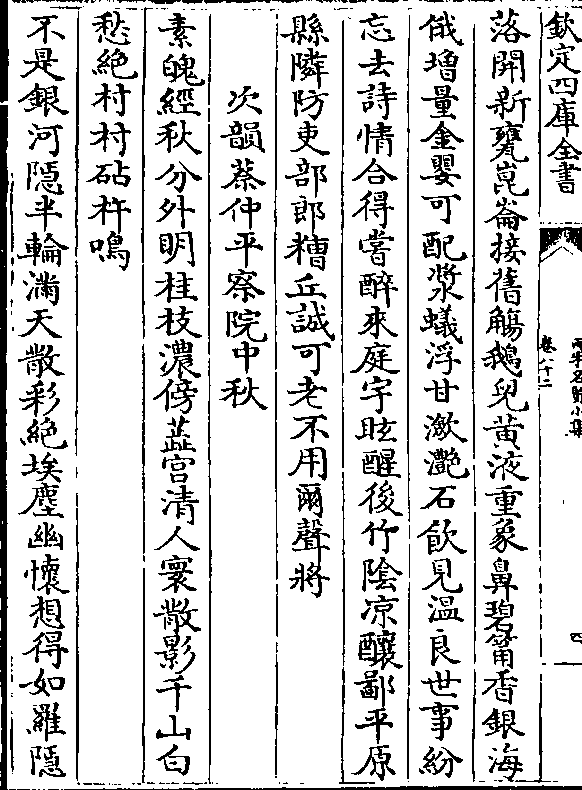 欽定四庫全書
兩宋名賢小集
卷八十二
四
落開新甕崑崙接舊觴鵝兒黃液重象鼻碧筩香銀海
俄增量金罌可配漿蟻浮甘瀲灧石飲見溫良世事紛
忘去詩情合得嘗醉來庭宇眩醒後竹陰凉釀鄙平原
縣隣防吏部郎糟丘誠可老不用爾聲將
次韻蔡仲平察院中秋
素魄經秋分外明桂枝濃傍蘂宫清人寰散影千山白
愁絶村村砧杵鳴
不是銀河隠半輪滿天散彩絶埃塵幽懷想得如羅隠